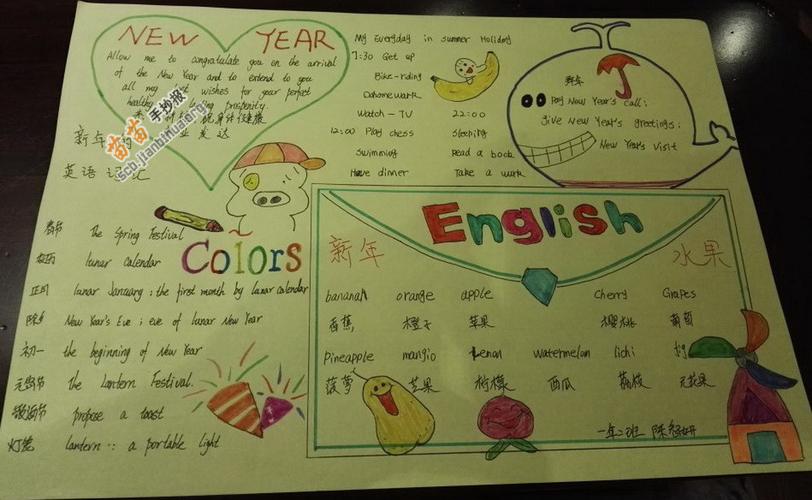 NEW YEAR
Allow me to congratulate you on the arrival
of the New Year and to extend to you
all my best wishes for your perfect
healthy lasting prosperity.
身体健康
新年的 业发达
英语
苗苗手抄报
scb.jianbihua.org
My Everyday in summer Holiday
7:30 Get up
Bike-riding
Dohomework
Watch-TV 22:00
12:00 Play chess Sleeping
Swimming Read a book
Have dinner Take a walk
拜年
Pay New Year's call;
give New Year's greetings;
New Year's visit
Colors
春节 the Spring Festival
农历 lunar calendar
正月 lunar January; the first month by lunar calendar
除夕 New Year's Eve; eve of lunar New Year
初一 the beginning of New Year
元宵节 the Lantern Festival.
propose a toast
灯笼 lantern: a portable light
English
新年 水果
orange apple cherry Grapes
香蕉 橙子 苹果 樱桃 葡萄
Pineapple mangio Lenon watermelon lichi
菠萝 芒果 柠檬 西瓜 荔枝 无花果
一年二班